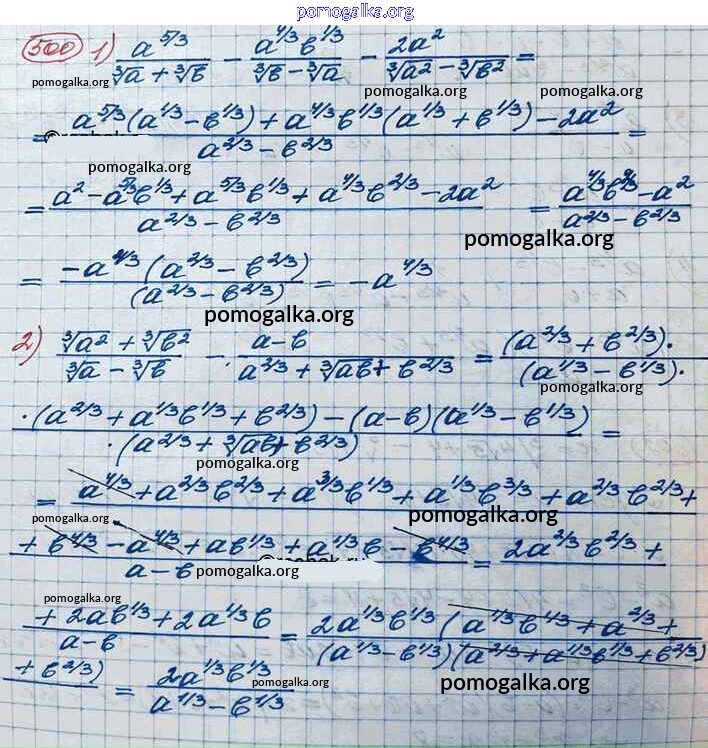 pomogalka.org
500 1) a^5/3 / (∛a + ∛b) − a^4/3 b^1/3 / (∛b − ∛a) − 2a² / (∛a² − ∛b²) =
pomogalka.org pomogalka.org pomogalka.org
= (a^5/3 (a^1/3 − b^1/3) + a^4/3 b^1/3 (a^1/3 + b^1/3) − 2a²) / (a^2/3 − b^2/3) =
pomogalka.org
= (a² − a^5/3 b^1/3 + a^5/3 b^1/3 + a^4/3 b^2/3 − 2a²) / (a^2/3 − b^2/3) = (a^4/3 b^2/3 − a²) / (a^2/3 − b^2/3)
pomogalka.org
= −a^4/3 (a^2/3 − b^2/3) / (a^2/3 − b^2/3) = −a^4/3
pomogalka.org
2) (∛a² + ∛b²) / (∛a − ∛b) − (a−b) / (a^2/3 + ∛ab + b^2/3) = (a^2/3 + b^2/3)· / (a^1/3 − b^1/3)·
pomogalka.org
·(a^2/3 + a^1/3 b^1/3 + b^2/3) − (a−b)(a^1/3 − b^1/3) / ·(a^2/3 + ∛ab + b^2/3) =
pomogalka.org
= a^4/3 + a^2/3 b^2/3 + a^3/3 b^1/3 + a^1/3 b^3/3 + a^2/3 b^2/3 +
pomogalka.org pomogalka.org
+ b^4/3 − a^4/3 + ab^1/3 + a^1/3 b − b^4/3 / a−b = 2a^2/3 b^2/3 +
pomogalka.org
pomogalka.org
+ 2ab^1/3 + 2a^1/3 b / a−b = 2a^1/3 b^1/3 (a^1/3 b^1/3 + a^2/3 + / (a^1/3 − b^1/3)(a^2/3 + a^1/3 b^1/3 + b^2/3)
+ b^2/3) = 2a^1/3 b^1/3 / (a^1/3 − b^1/3)
pomogalka.org pomogalka.org